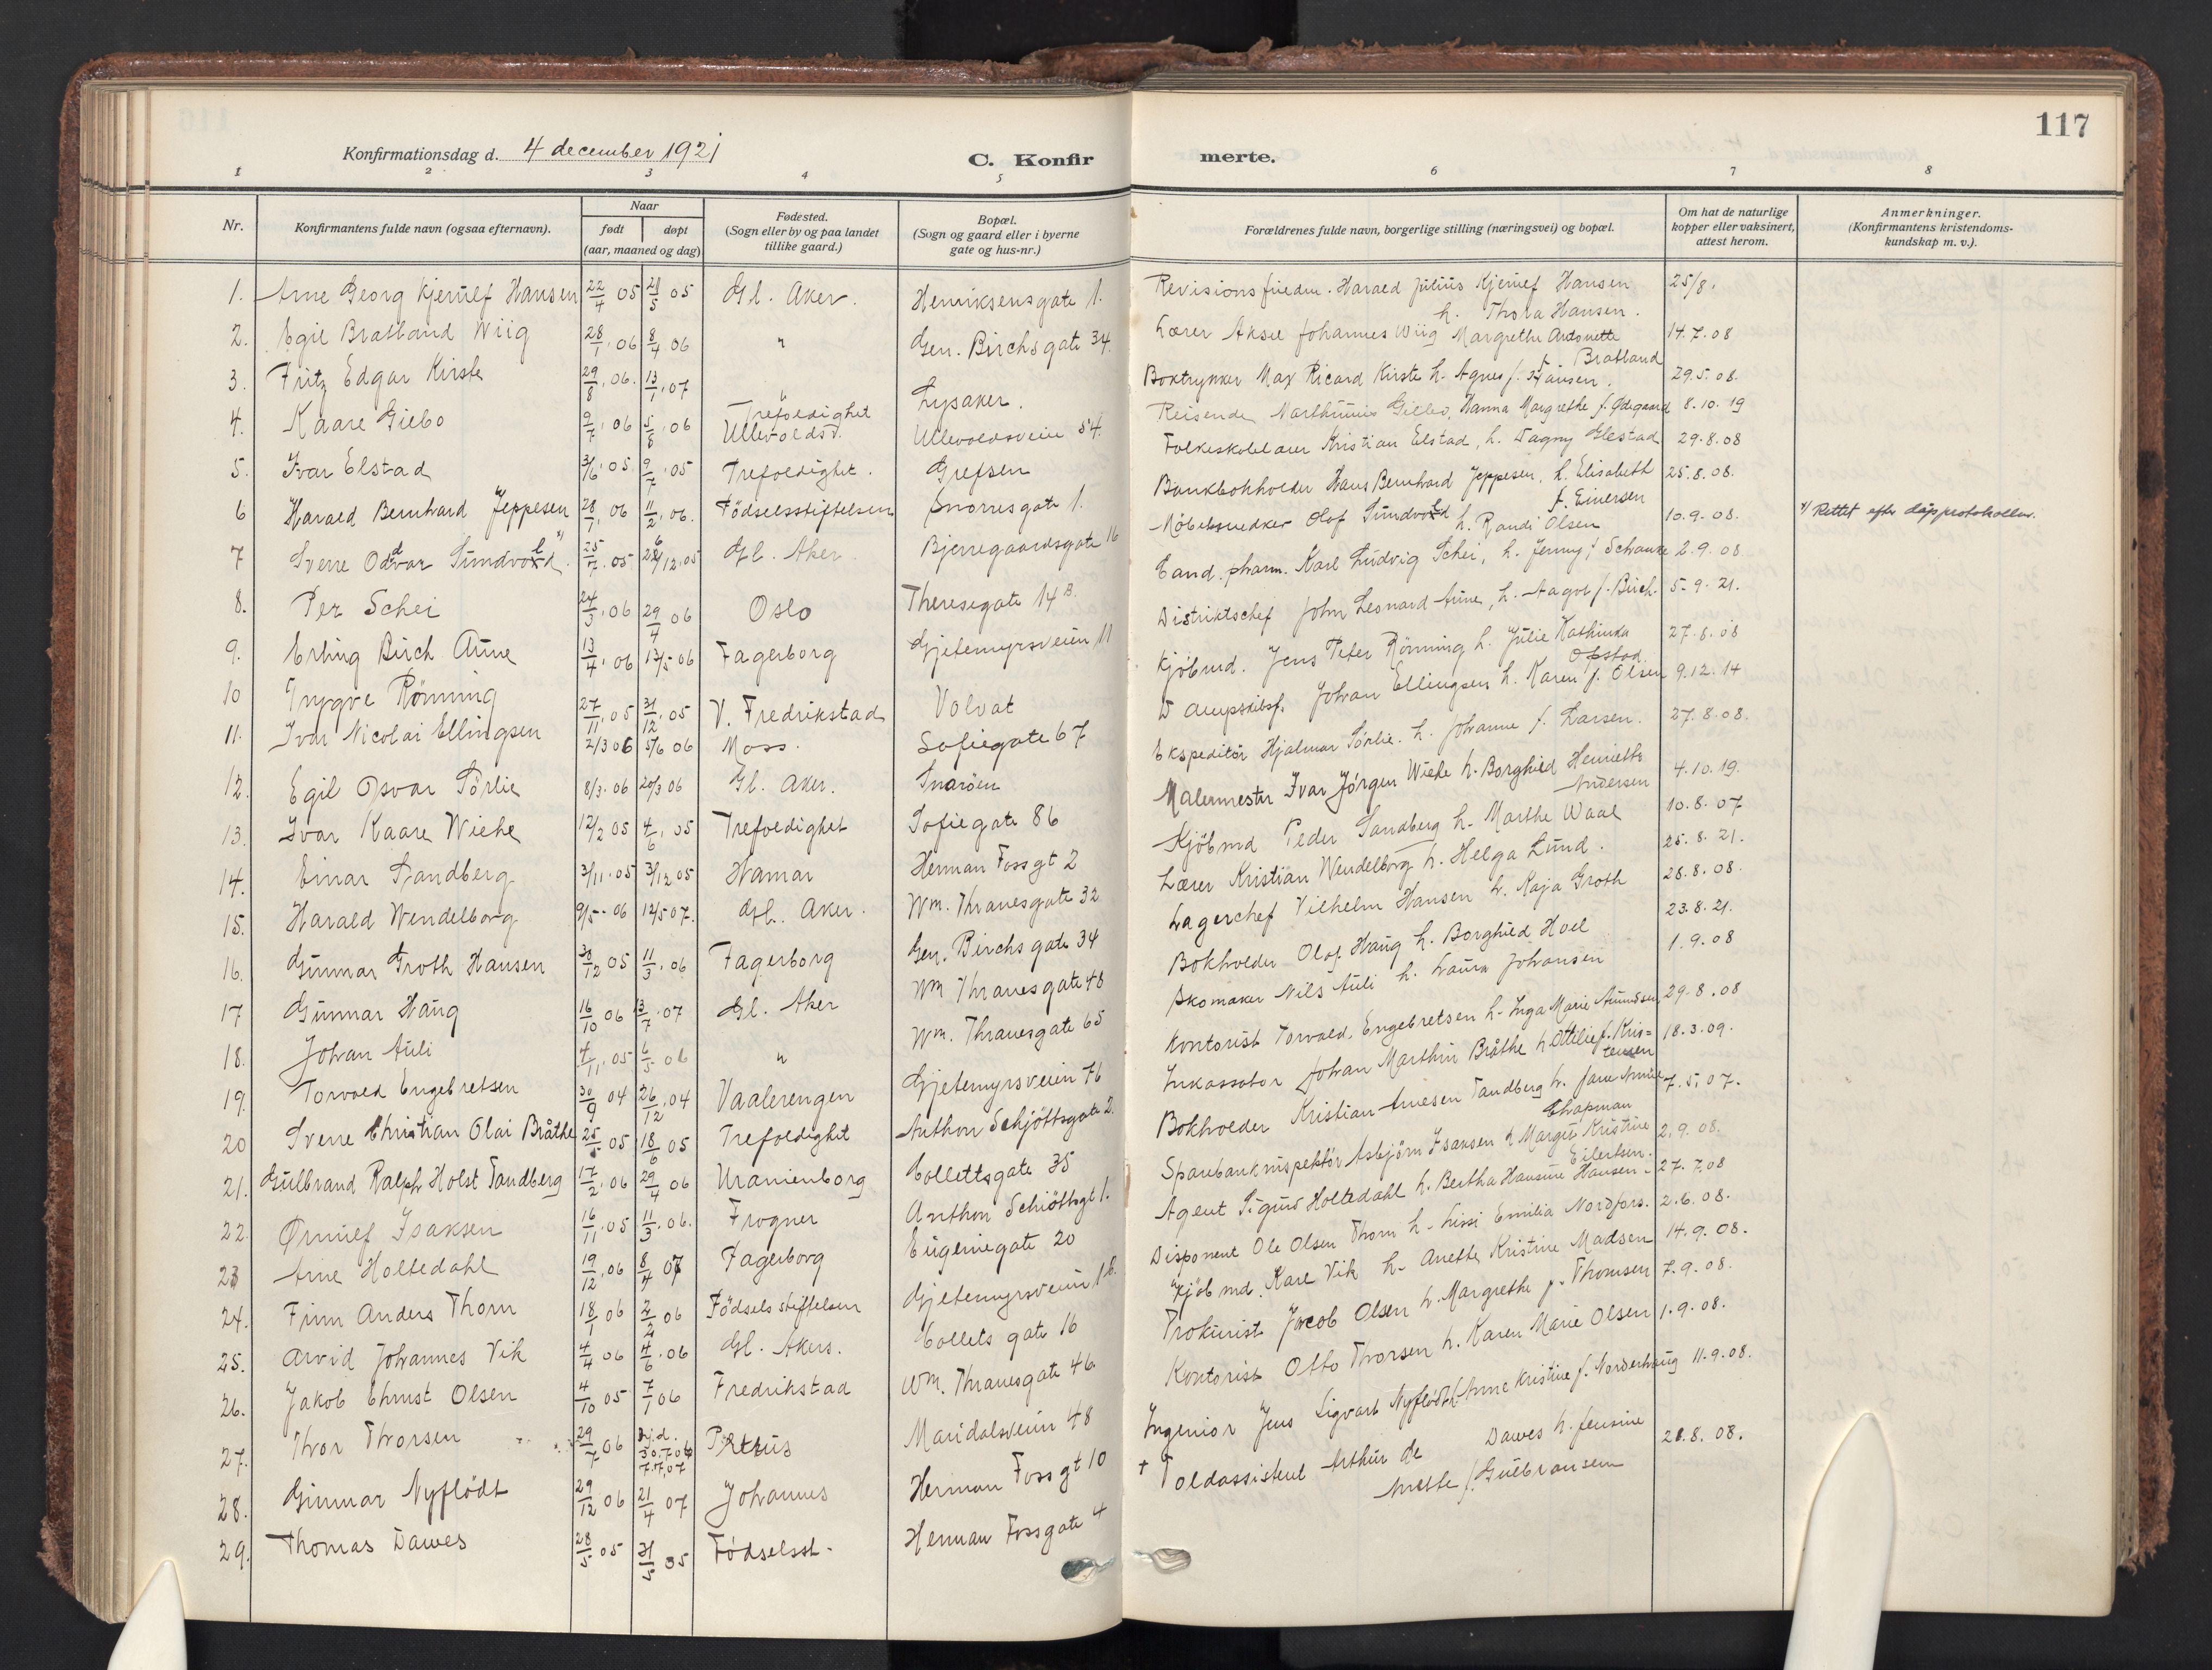 117
Konfirmationsdag d. 4 december 1921
C. Konfir merte.
1 2 3 4 5 6 7 8
Nr.
Konfirmantens fulde navn (ogsaa efternavn).
Naar
født døpt
(aar, maaned og dag)
Fødested.
(Sogn eller by og paa landet
tillike gaard.)
Bopæl.
(Sogn og gaard eller i byerne
gate og hus-nr.)
Forældrenes fulde navn, borgerlige stilling (næringsvei) og bopæl.
Om hat de naturlige
kopper eller vaksinert,
attest herom.
Anmerkninger.
(Konfirmantens kristendoms-
kundskap m. v.).
1. Arne Georg Kjerulf Hansen 22/4 05 21/5 05 Gl. Aker. Henriksensgate 1. Harald Julius Kjerulf Hansen h. Thora Hansen. 25/8.
2. Egil Bratland Wiig 28/1. 06 8/4 06 " Gen. Birchsgate 34. Lærer Aksel Johannes Wiig Margrethe Antonette f. Bratland 14.7.08
3. Fritz Edgar Kirste 29/8. 06. 13/1. 07 " Lysaker. Boktrykker Max Ricard Kirste h. Agnes f. Hansen. 29.5.08.
4. Kaare Giebo 9/7. 06 5/8. 06 Trefoldighet Ullevoldsv. Ullevoldsveien 54. Reisende Giebo, Hanna Margrethe f. Ødegaard 8.10.19
5. Ivar Elstad 3/6. 05. 9/7. 05 Trefoldighet. Grefsen Folkeskolelærer Kristian Elstad, h. Dagny Elestad 29.8.08
6 Harald Bernhard Jeppesen 28/1. 06 11/2. 06. Fødselsstiftelsen Snorresgate 1. Bankbokholder Hans Bernhard Jeppesen, h. Elisabeth f. Einersen 25.8.08.
7 Sverre Oddvar Sundvold 1) 25/7. 05 26/12.05 Gl. Aker Bjerregaardsgate 16 Møbelsnedker Olof Sundvold h. Randi Olsen 10.9.08. 1) Rettet efter dåpsprotokollen.
8. Per Schei 24/3. 06 29/4 06 Oslo Theresegate 14 B. Cand. pharm. Karl Ludvig Schei, h. Jenny f. Schanke 2.9.08.
9. Erling Birch Aune 13/4. 06 13/5 06 Fagerborg Gjetemyrsveien 11 Distriktschef John Leonard Aune, h. Aagot f. Birch. 5.9.21.
10 Trygve Rönning 27/11. 05 31/12. 05 V. Fredrikstad Volvat Kjøbmd. Jens Peter Rönning h. Julie Kathinka Opstad 27.8.08
11. Ivar Nicolai Ellingsen 2/3 06 5/6 06 Moss. Sofiegate 67 Dampskibsf. Johan Ellingsen h. Karen f. Olsen 9.12.14
12. Egil Opsvar Sörlie 8/3. 06 20/3 06 Gl. Aker. Snaröen Ekspeditör Hjalmar Sörlie. h. Johanne f. Larsen. 27.8.08.
13. Ivar Kaare Wiehe 12/2 05 4/6. 05 Trefoldighet Sofiegate 86 Malermester Ivar Jörgen Wiehe h. Borghild Henriette Andersen 4.10.19.
14. Einar Sandberg 3/11. 05 3/12 05 Hamar Herman Fossgt 2 Kjöbmd Peder Sandberg h. Marthe Waal 10.8.07
15. Harald Wendelborg 9/5. 06 12/5 07. Gl. Aker. Wm. Thranesgate 32 Lærer Kristian Wendelborg h. Helga Lund. 25.8.21.
16. Gunnar Groth Hansen 30/12 05 11/3. 06 Fagerborg Gen. Birchs gate 34 Lagerchef Vilhelm Hansen h. Kaja Groth 28.8.08.
17 Gunnar Haug 16/10 06 13/7. 07 Gl. Aker Wm Thranesgate 48 Bokholder Olaf Haug h. Borghild Hoel 23.8.21.
18. Johan Auli 4/11. 05 6/5 06 " Wm. Thranesgate 65 Skomaker Nils Auli h. Laura Johansen 1.9.08
19. Torvald Engebretsen 30/9 04 26/12.04 Vaalerengen Gjetemyrsveien 76 Kontorist Torvald Engebretsen h. Inga Marie Amundsen 29.8.08
20 Sverre Christian Olai Bråthe 25/5 05 18/6 05 Trefoldighet Anthon Schjöttsgate 2. Inkassator Johan Marthin Bråthe h. Ottilie f. Kris=tensen 18.3.09.
21. Gulbrand Ralph Holst Tandberg 17/2. 06 29/4 06 Uranienborg Collettsgate 35 Bokholder Kristian Arnesen Tandberg h. Jane Chapman 7.5.07.
22. Ørnulf Isaksen 16/11. 05 11/3. 06. Frogner Anthon Schiöttsgt 1. Sparebankinspektör Asbjörn Isaksen h. Margit Kristine Eilertsen. 2.9.08.
23 Arne Holtedahl 19/12. 06 8/4 07 Fagerborg Eugeniegate 20 Agent Sigurd Holtedahl h. Bertha Hansine Hansen - 27.7.08
24. Finn Anders Thorn 18/1 06 2/2 06 Födselsstiftelsen Gjetemyrsveien 1 b. Disponent Ole Olsen Thorn h. Lissi Emilia Nordfors. 2.6.08.
25. Arvid Johannes Vik 4/4 06 4/6. 06 Gl. Akers. Collets gate 16 Kjöbmd. Karl Vik h. Anette Kristine Madsen 14.9.08.
26. Jakob Ehrnst Olsen 4/10 05 7/1 06 Fredrikstad Wm. Thranesgate 46 Prokurist Jacob Olsen h. Margrethe f. Thomsen 7.9.08.
27. Thor Thorsen 29/7 06 hj.d. 30.7.06 7.7.07 Petrus Maridalsveien 48 Kontorist Otto Thorsen h. Karen Marie Olsen 1.9.08.
28. Gunnar Nyflödt 29/12 06 21/4 07 Johannes Herman Foss gt 10 Ingeniør Jens Sigvart Nyflödt h. Anne Kristine f. Norderhaug 11.9.08.
29. Thomas Dawes 28/5 05 31/5 05 Födselsst. Herman Fossgate 4 + Toldassistent Arthur de Dawes h. Jensine Anette f. Gulbransen 28.8.08.